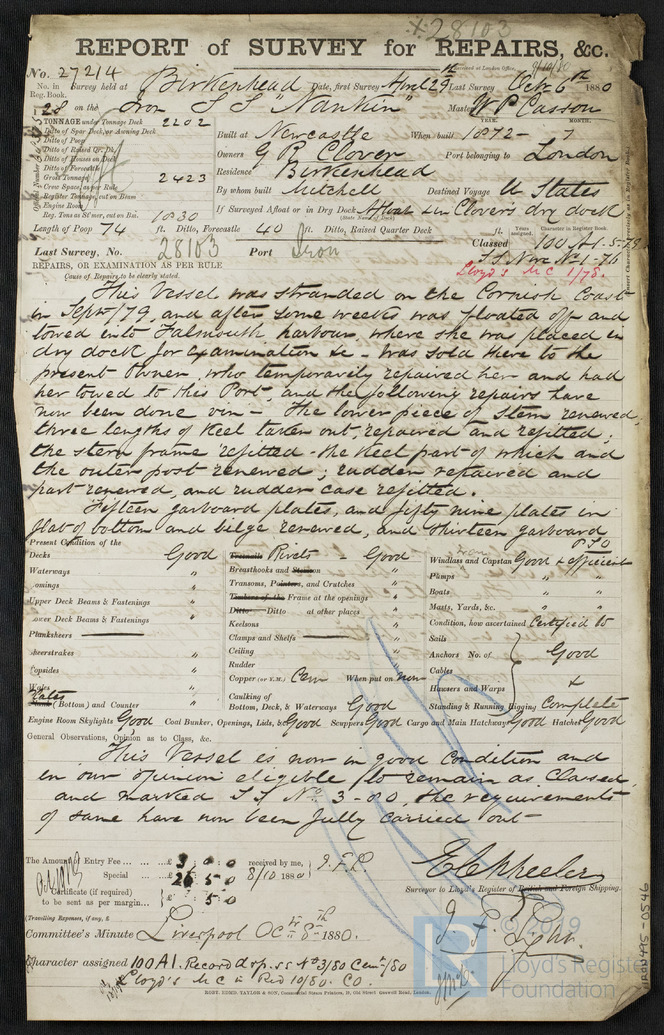 *28103
REPORT of SURVEY for REPAIRS, &c.
No. 27214
Received at London Office, 9/10/80
No. in Reg. Book. Survey held at Birkenhead Date, first Survey April 29th Last Survey Octr 6th 1880
128 on the Iron SS "Nankin" Master W P Casson
TONNAGE under Tonnage Deck 2202
Ditto of Spar Deck, or Awning Deck
Ditto of Poop
Ditto of Raised Qr. Dk.
Ditto of Houses on Deck
Ditto of Forecastle
Gross Tonnage 2423
Crew Space, as per Rule
Register Tonnage, cut on Beam
Engine Room
Reg. Tons as St'mer, cut on Bm. 1030
YEAR. MONTH.
Built at Newcastle When built 1872 - 7
Owners G R Clover Port belonging to London
Residence Birkenhead
By whom built Mitchell Destined Voyage U States
If Surveyed Afloat or in Dry Dock Afloat & in Clovers dry dock
(State Name of Dock.)
Length of Poop 74 ft. Ditto, Forecastle 40 ft. Ditto, Raised Quarter Deck ft.
Years assigned. Character in Register Book.
Classed 100 A1. 5-79
S.S. Nwc No 1-76
Lloyd's M C 1/78.
Last Survey, No. 28103 Port Iron
REPAIRS, OR EXAMINATION AS PER RULE
Cause of Repairs, to be clearly stated.
This Vessel was stranded on the Cornish Coast
in Septr /79, and after some weeks was floated off and
towed into Falmouth harbour, where she was placed in
dry dock for examination &c - was sold there to the
present Owner, who temporarily repaired her and had
her towed to this Port, and the following repairs have
now been done viz - The lower piece of stem renewed,
three lengths of Keel taken out, repaired and refitted;
the stern frame refitted - the Keel part of which and
the outer post renewed; rudder repaired and
part renewed, and rudder case refitted.
Fifteen garboard plates, and fifty nine plates in
flat of bottom and bilge renewed, and thirteen garboard
P T O
Present Condition of the
Decks Good
Waterways "
Comings "
Upper Deck Beams & Fastenings "
Lower Deck Beams & Fastenings "
Planksheers
Sheerstrakes "
Topsides "
Wales "
Plates (Bottom) and Counter "
Treenails Rivets - Good
Breasthooks and Stemson "
Transoms, Pointers, and Crutches "
Timbers of the Frame at the openings "
Ditto Ditto at other places "
Keelsons "
Clamps and Shelfs "
Ceiling "
Rudder "
Copper (or Y.M.) Cem When put on now
Caulking of Bottom, Deck, & Waterways Good
Windlass and Capstan Good & efficient
Pumps " "
Boats " "
Masts, Yards, &c. " "
Condition, how ascertained Certified to
Sails
Anchors No. of Good
Cables
Hawsers and Warps &
Standing & Running Rigging Complete
Engine Room Skylights Good Coal Bunker, Openings, Lids, &c. Good Scuppers Good Cargo and Main Hatchways Good Hatches Good
General Observations, Opinion as to Class, &c.
This Vessel is now in good condition and
in our opinion eligible to remain as Classed
and marked S.S. No. 3-80, the requirements
of same have now been fully carried out -
The Amount of Entry Fee ... £ 3 . 0 . 0 received by me,
Special ... £ 26 . 5 . 0 8/10 1880
Certificate (if required) to be sent as per margin... 5 . 0
(Travelling Expenses, if any, £
Surveyor to Lloyd's Register of British and Foreign Shipping.
J. F. Light.
Committee's Minute Liverpool Oct 8th 1880.
Character assigned 100 A1. Record dp. ss No 3/80 Cemt /80
Lloyd's M C in Red 10/80. CO.
ROBT. EDMD. TAYLOR & SON, Commercial Steam Printers, 19, Old Street, Goswell Road, London.
IRON495-0546
© 2019
Lloyd's Register
Foundation